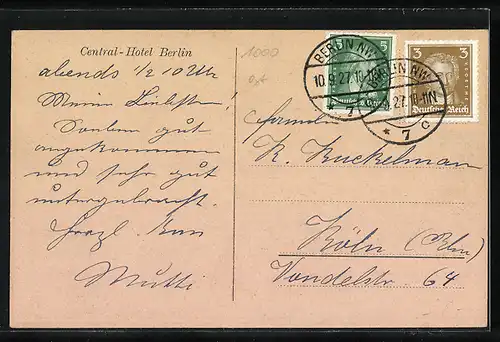 Central-Hotel Berlin
abends 1/2 10 Uhr
Meine Liebsten!
Soeben gut
angekommen
und sehr gut
untergebracht.
Herzl.
Mutti
1000
BERLIN NW
10.9.27.10-11N
7
5
BERLIN NW
9.27.10-11N
* 7 c
3
3
Deutsches Reich
Familie
R. Kuckelman
Köln (Rhn)
Vondelstr 64